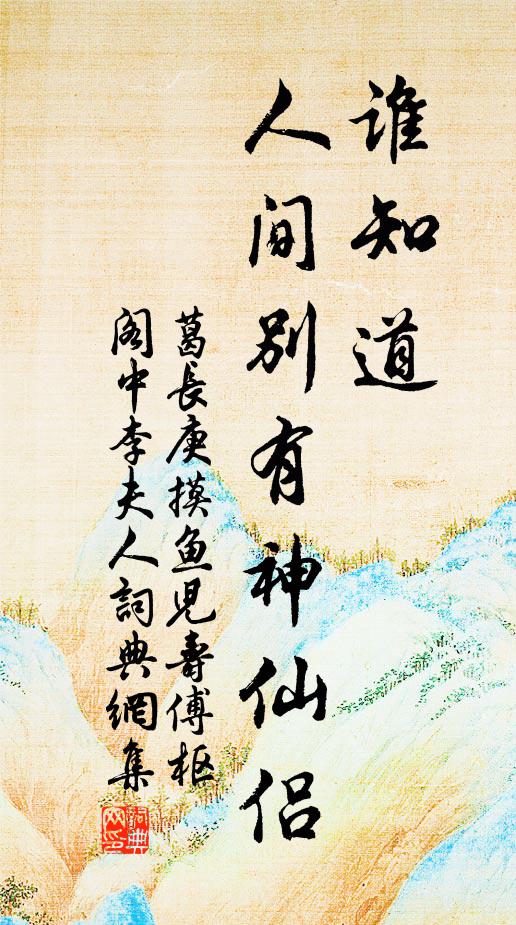 谁知道
人间别有神仙侣
葛長庚摸鱼児壽傅枢
阁中李夫人詞典網集
詞典网印